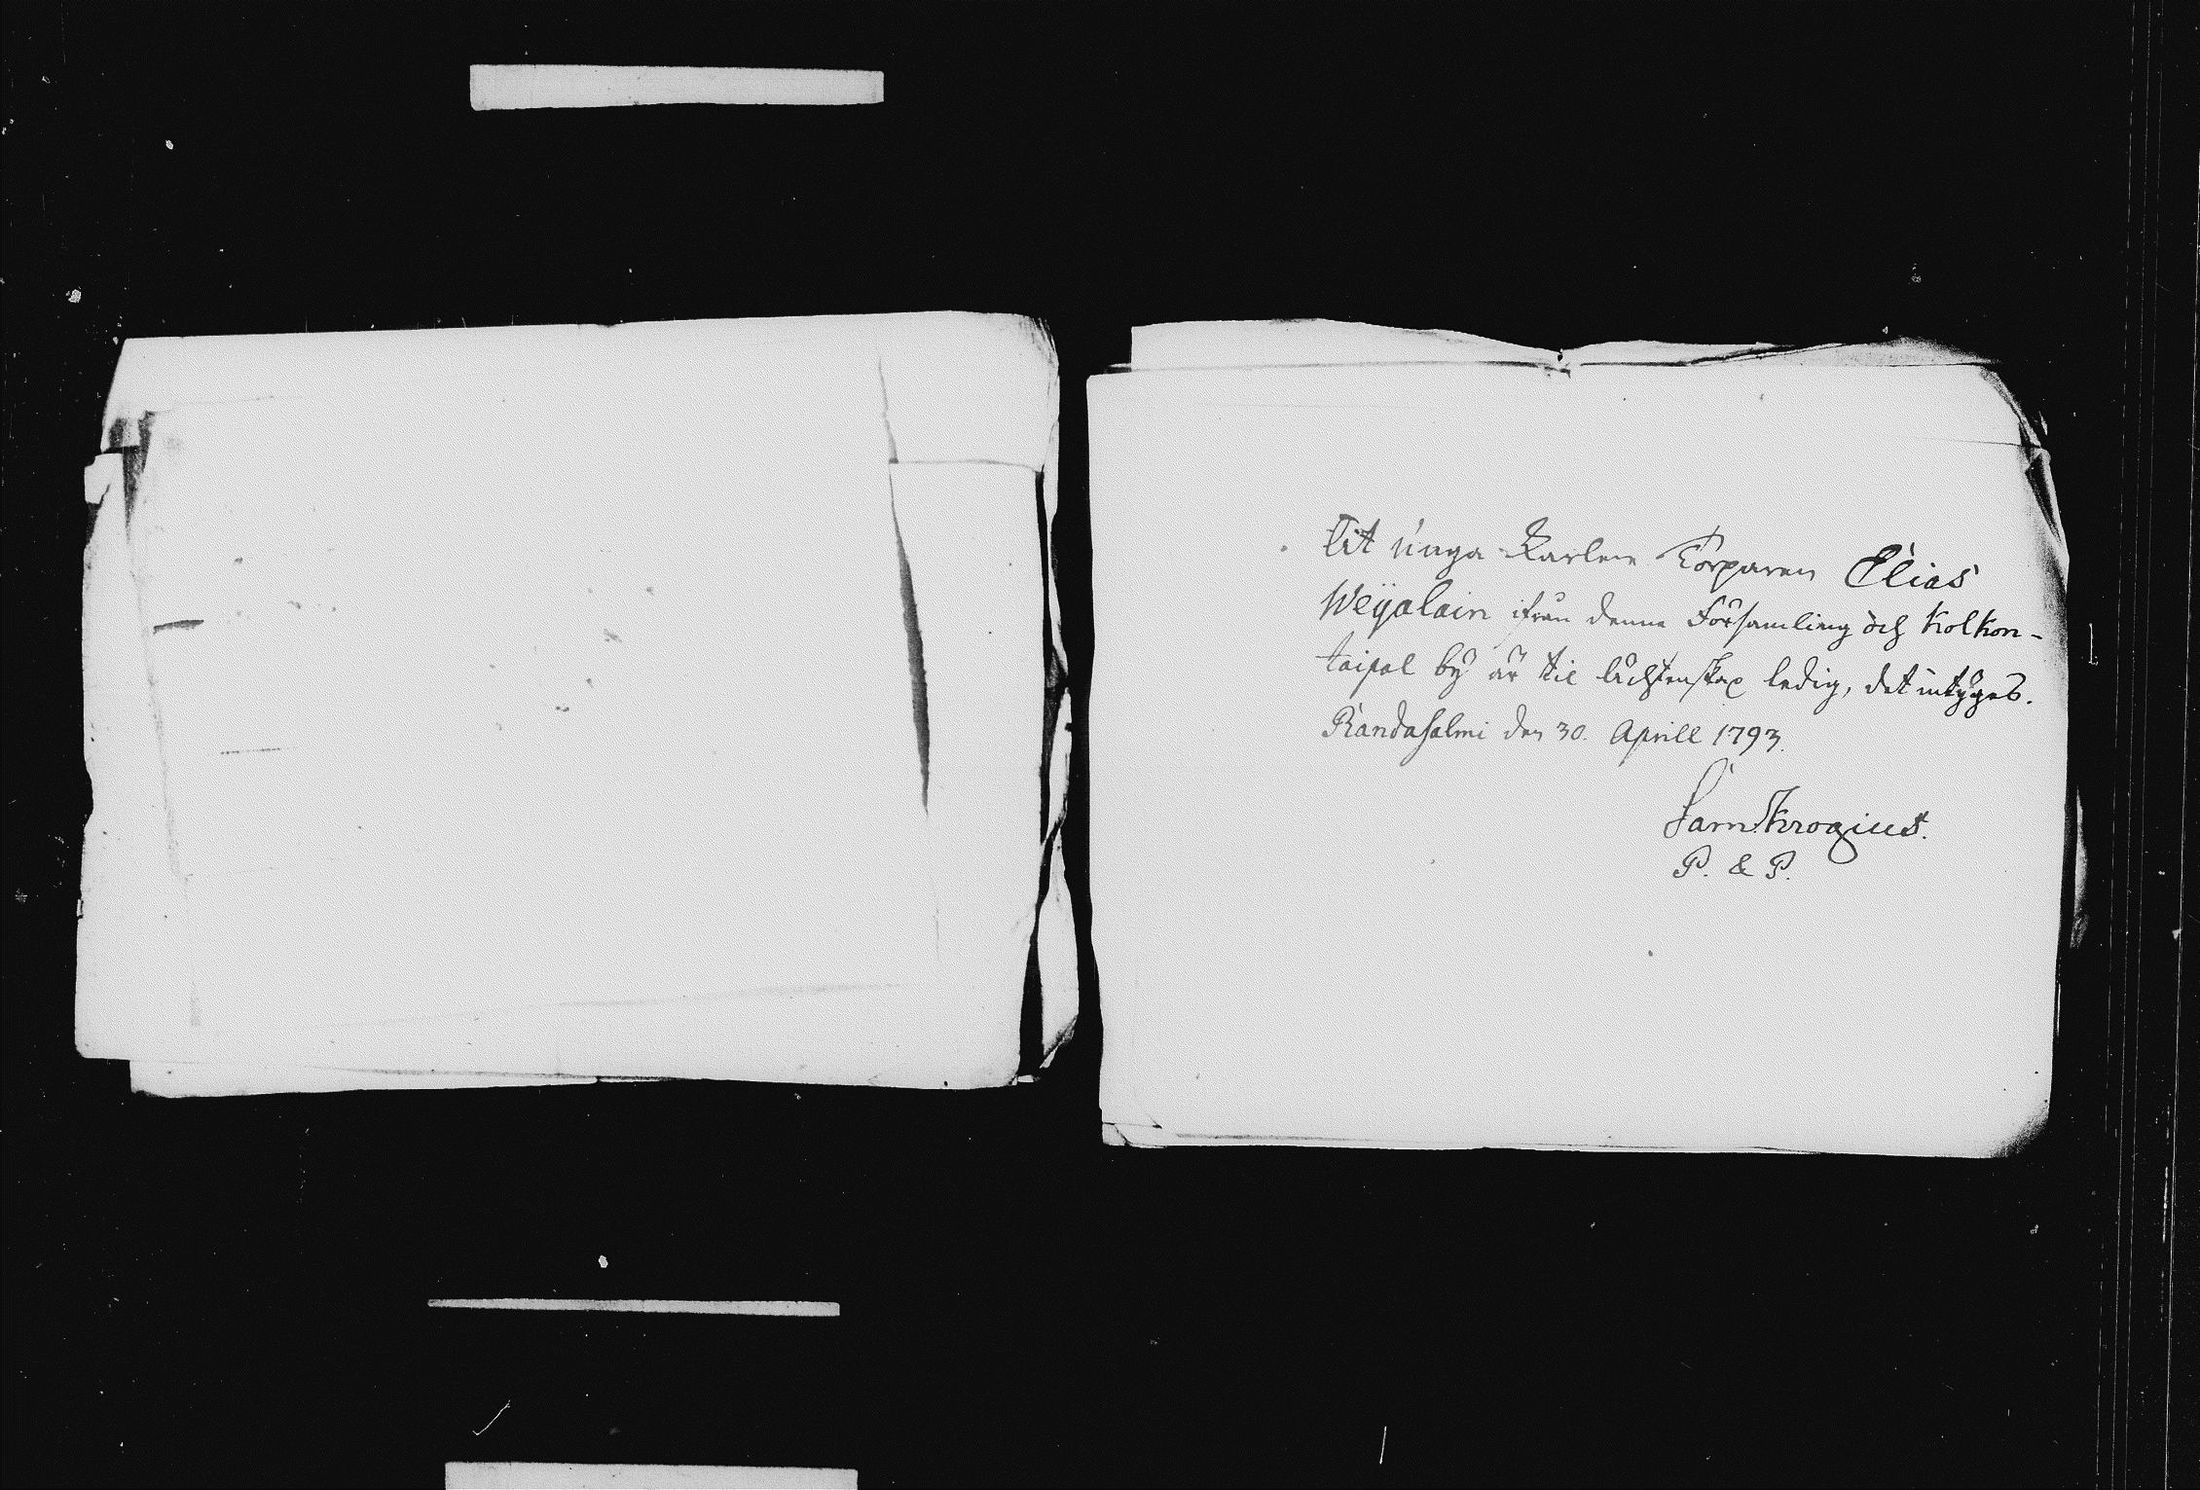 Tit unga Karlen Torparen Elias
Weijalain ifrån denna Församling och Kolkon-
taipal bÿ är til äcktenskap ledig, det intÿgas.
Randasalmi den 30. Aprill 1793.
Sam. Krogius.
P. & P.